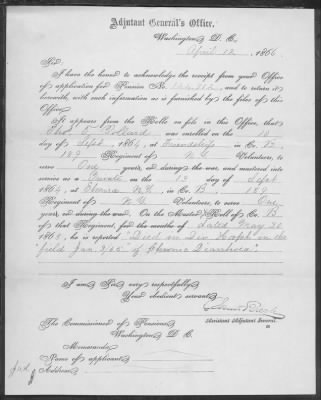 Adjutant General's Office,
Washington, D. C.
April 12, 1866
Sir:
I have the honor to acknowledge the receipt from your Office
of application for Pension No. and to return it
herewith, with such information as is furnished by the files of this
Office.
It appears from the Rolls on file in this Office, that
Pollard was enrolled on the 10
day of Sept, 1864, at in Co. B,
189 Regiment of N.Y. Volunteers, to
serve One years, or during the war, and mustered into
service as a Private on the 13 day of Sept
1864, at Elmira N.Y., in Co. B, 189
Regiment of N.Y. Volunteers, to serve One
years, or during the war. On the Muster Roll of Co. B
of that Regiment, for the months of Dated May 30
1865, he is reported "Died in Div. Hosp. in the
field Jan. 3/65 of Chronic Diarrhoea"
I am Sir, very respectfully,
Your obedient servant,
Assistant Adjutant General.
The Commissioner of Pensions,
Washington, D. C.
Memoranda:
Name of applicant
Address